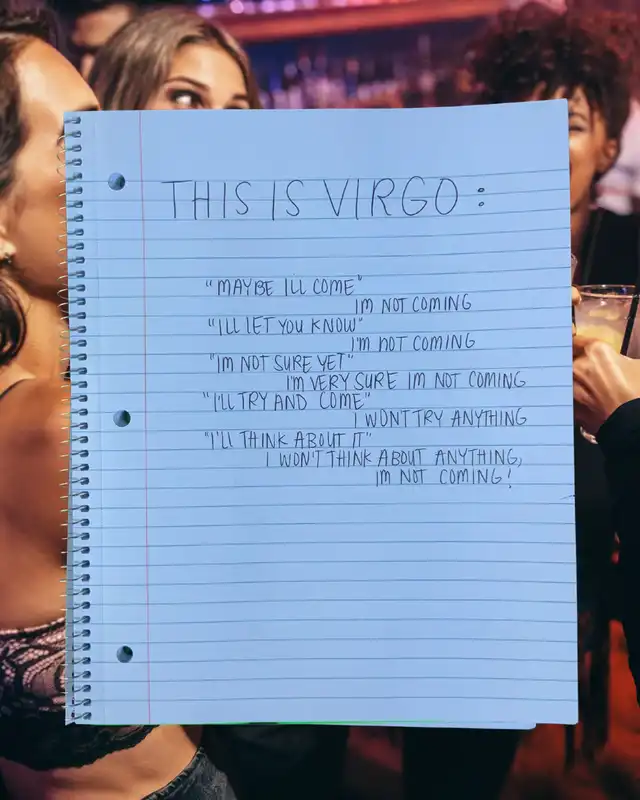 THIS IS VIRGO:
"MAYBE ILL COME"
IM NOT COMING
"ILL LET YOU KNOW"
I'M NOT COMING
"IM NOT SURE YET"
I'M VERY SURE IM NOT COMING
"I'LL TRY AND COME"
I WONT TRY ANYTHING
"I'LL THINK ABOUT IT"
I WON'T THINK ABOUT ANYTHING,
IM NOT COMING!